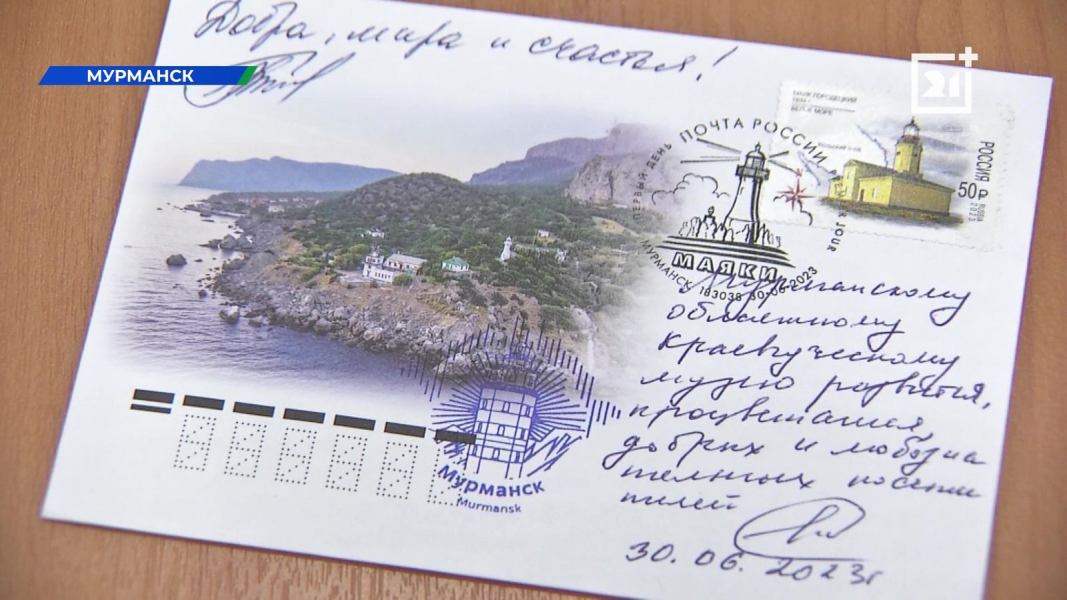 Добра, мира и счастья!
МУРМАНСК
21+
МАЯК ГОРОДЕЦКИЙ
БЕЛОЕ МОРЕ
РОССИЯ
50₽
2023
ПОЧТА РОССИИ
ПЕРВЫЙ ДЕНЬ
JOUR
МАЯКИ
МУРМАНСК 183038 30-06-2023
Мурманскому
областному
краеведческому
музею развития,
процветания,
добрых и любозна
тельных посети
телей
30.06.2023г
Мурманск
Murmansk